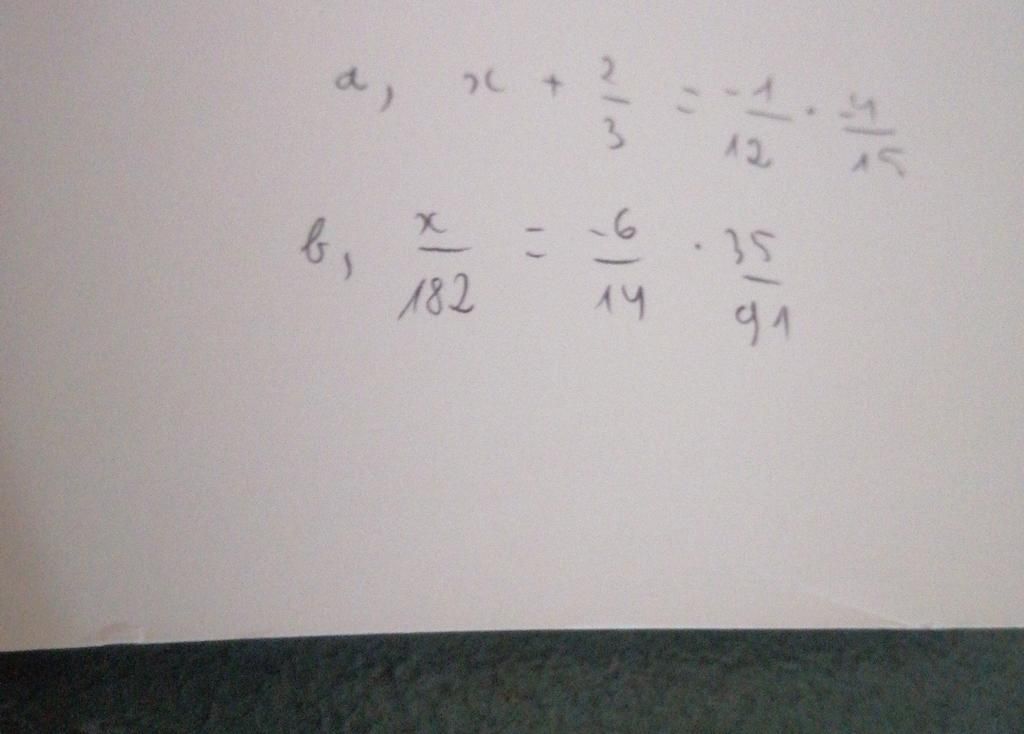 a, x + 2/3 = -1/12 . -4/15
b, x/182 = -6/14 . 35/91